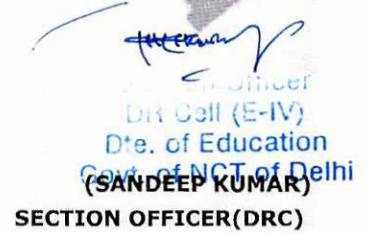 Officer
DR Cell (E-IV)
Dte. of Education
Govt. of NCT of Delhi
(SANDEEP KUMAR)
SECTION OFFICER(DRC)